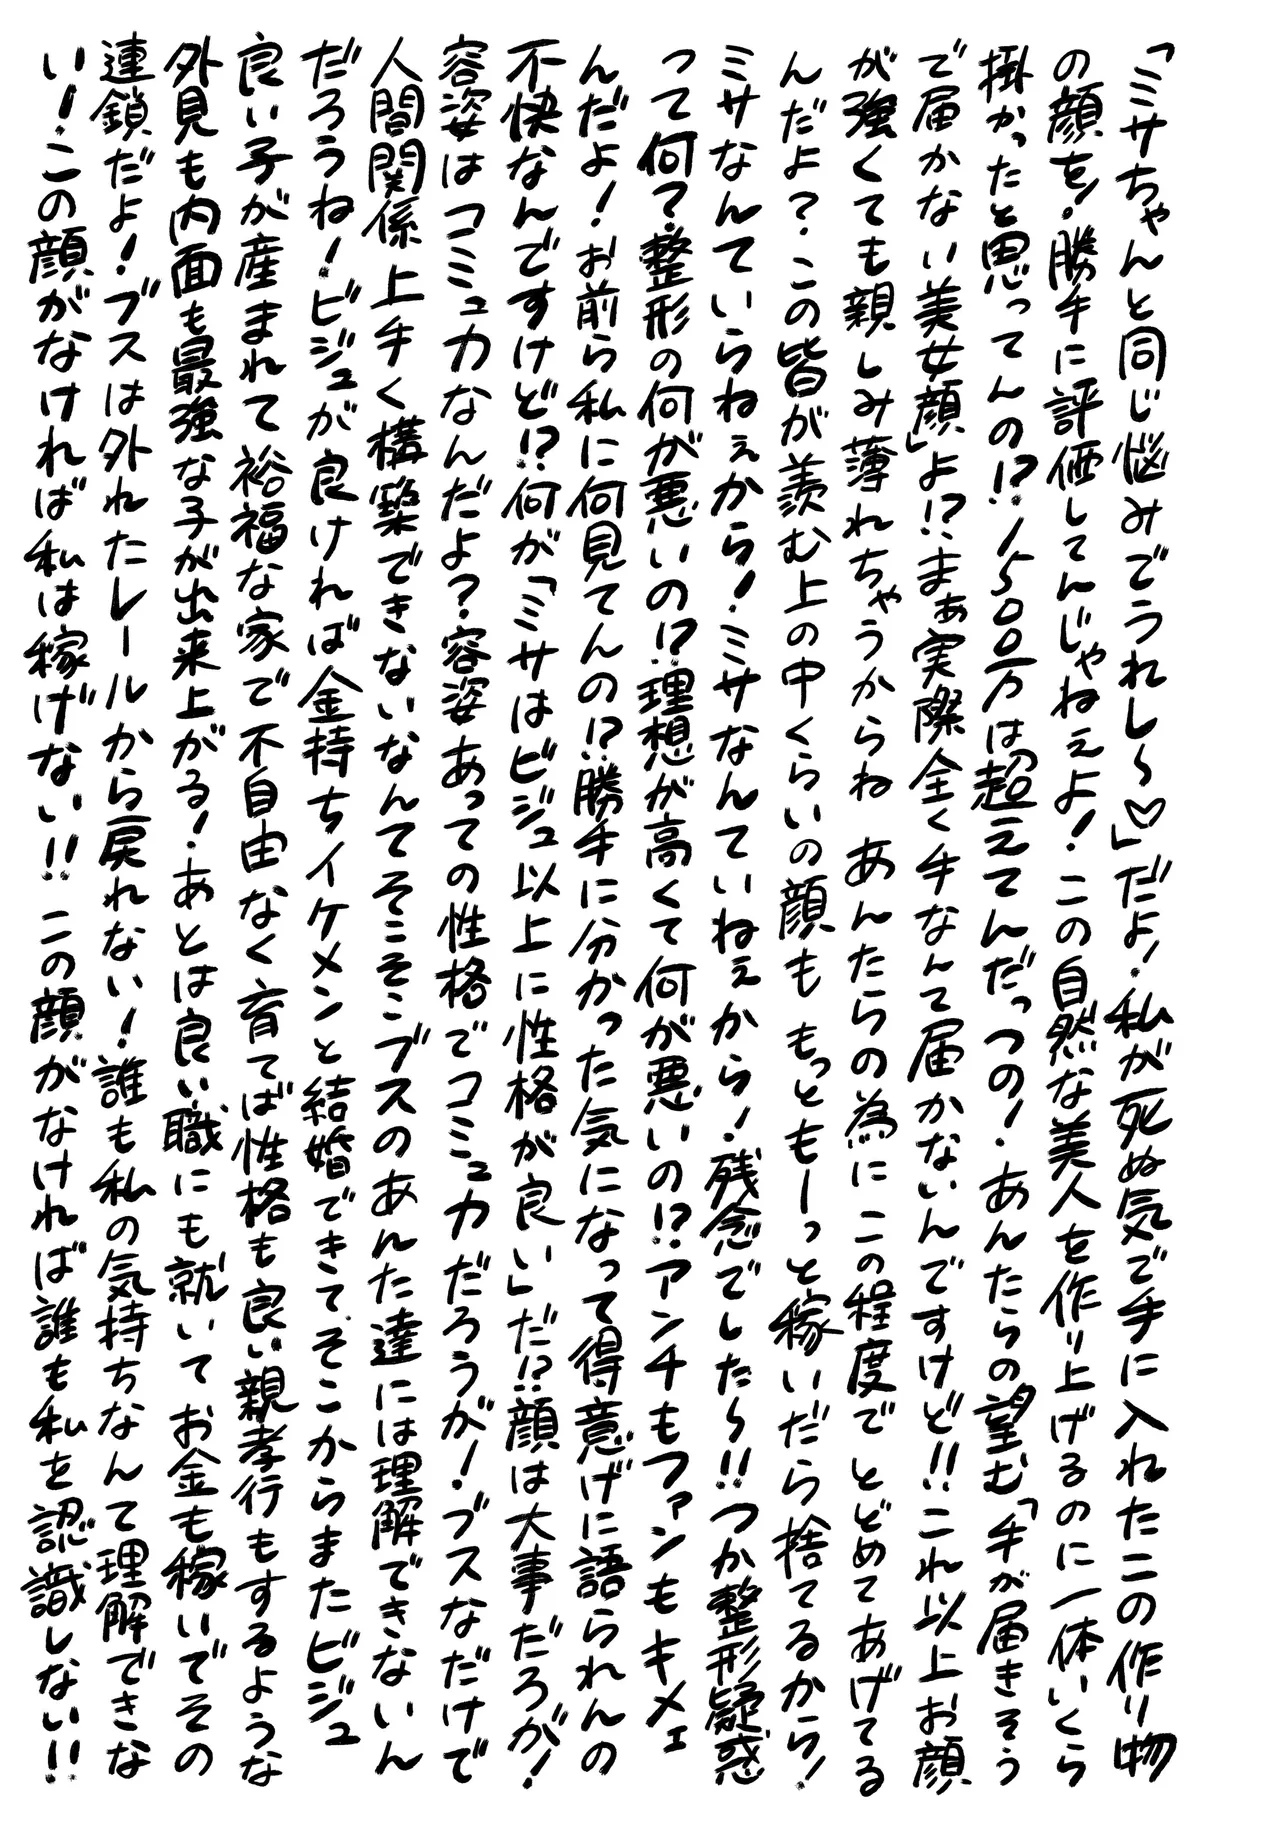 「ミサちゃんと同じ悩みでうれし〜♡」だよ！私が死ぬ気で手に入れたこの作り物
の顔を！勝手に評価してんじゃねぇよ！この自然な美人を作り上げるのに一体いくら
掛かったと思ってんの!?1500万は超えてんだっつの！あんたらの望む「手が届きそう
で届かない美女顔」よ!?まぁ実際全く手なんて届かないんですけど!!これ以上お顔
が強くても親しみ薄れちゃうからねあんたらの為にこの程度でとどめてあげてる
んだよ？この皆が羨む上の中くらいの顔ももっともーっと稼いだら捨てるから！
ミサなんていらねぇから！ミサなんていねぇから！残念でした〜!!つか整形疑惑
って何？整形の何が悪いの!?理想が高くて何が悪いの!?アンチもファンもキメェ
んだよ！お前ら私に何見てんの!?勝手に分かった気になって得意げに語られんの
不快なんですけど!?何が「ミサはビジュ以上に性格が良い」だ!?顔は大事だろが！
容姿はコミュ力なんだよ？容姿あっての性格でコミュ力だろうが！ブスなだけで
人間関係上手く構築できないなんてそこそこブスのあんた達には理解できないん
だろうね！ビジュが良ければ金持ちイケメンと結婚できて、そこからまたビジュ
良い子が産まれて裕福な家で不自由なく育てば性格も良い親孝行もするような
外見も内面も最強な子が出来上がる！あとは良い職にも就いてお金も稼いでその
連鎖だよ！ブスは外れたレールから戻れない！誰も私の気持ちなんて理解できな
い！この顔がなければ私は稼げない!!この顔がなければ誰も私を認識しない!!